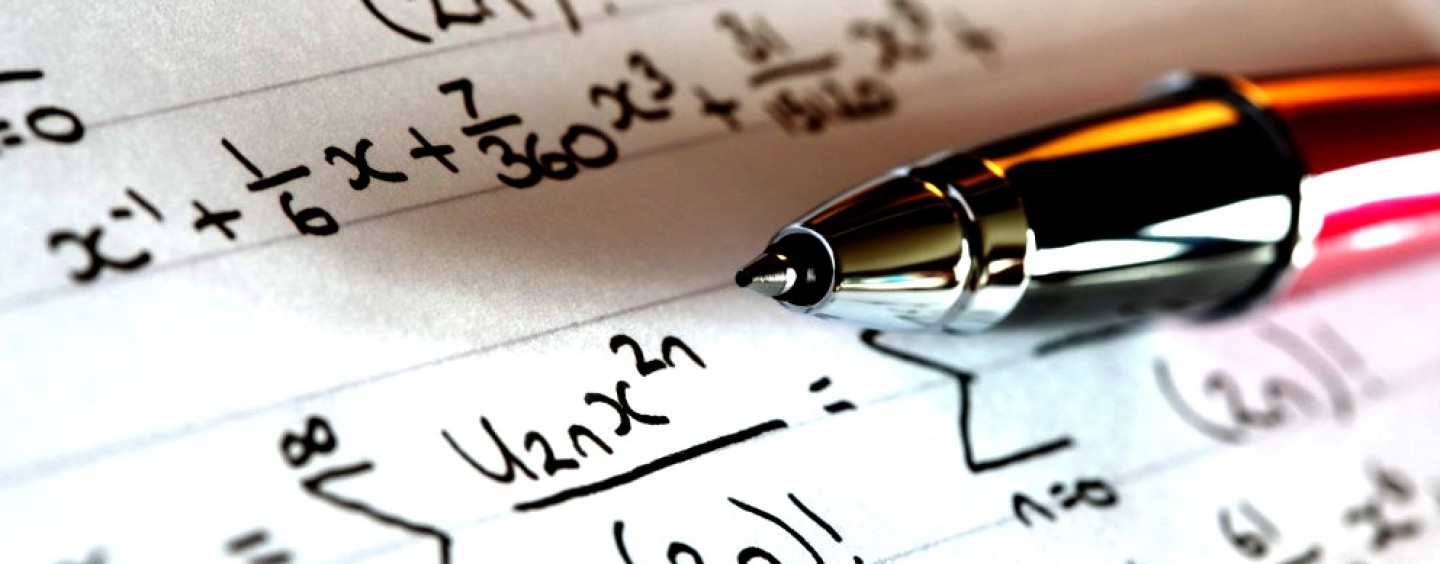 (2n)!
=0
x⁻¹ + 1/6 x + 7/360 x³ + 31/15120
∞
= Σ U₂ₙx²ⁿ/(2n)! = Σ (2n)!
n=0
61